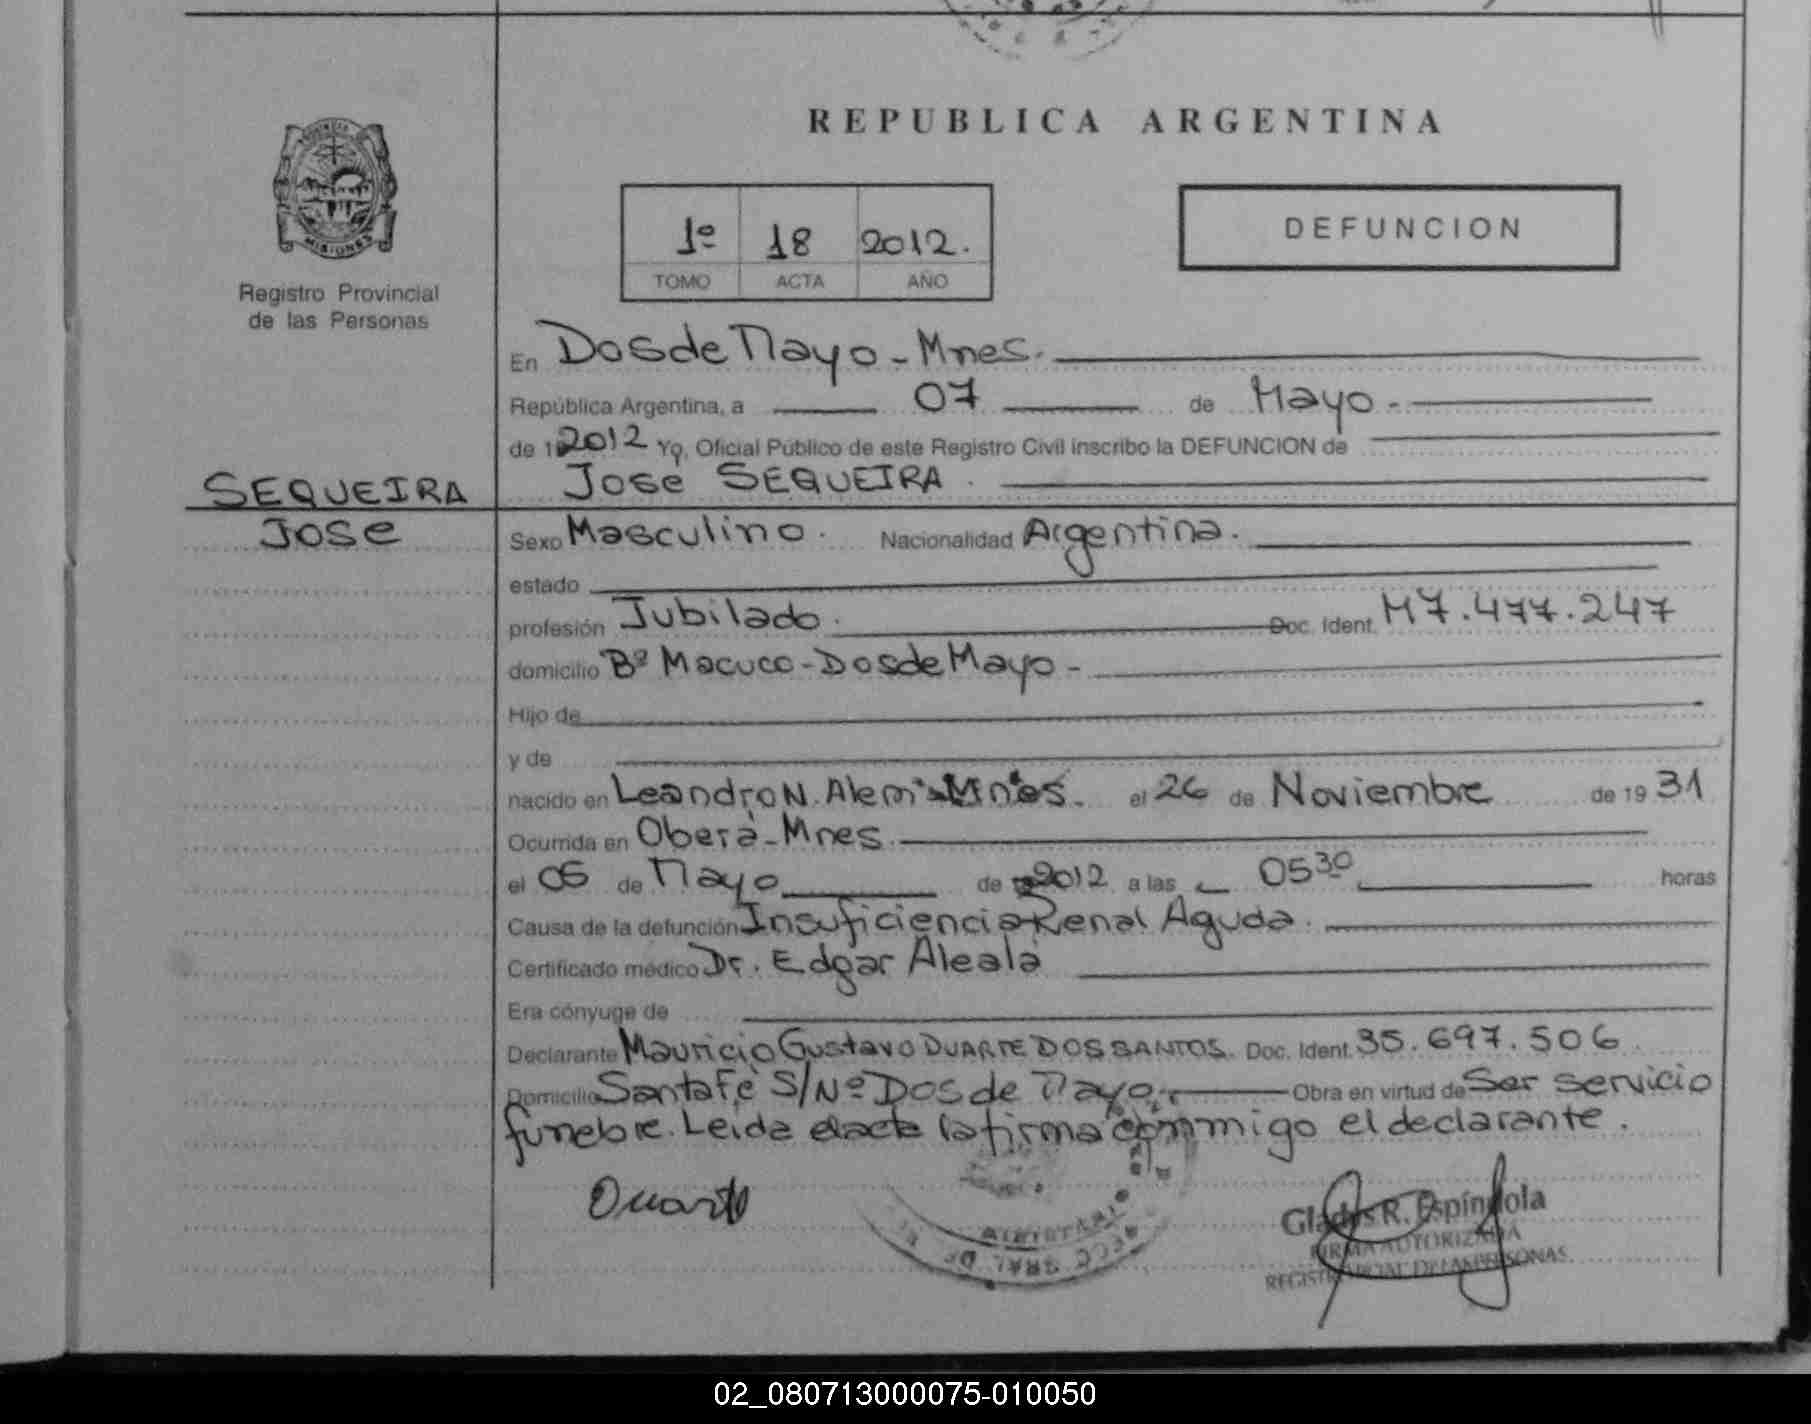 REPUBLICA ARGENTINA
MISIONES
Registro Provincial
de las Personas
1º 18 2012.
TOMO ACTA AÑO
DEFUNCION
En Dos de Mayo - Mnes.
República Argentina, a 07 de Mayo -
de 2012 Yo, Oficial Público de este Registro Civil inscribo la DEFUNCION de
SEQUEIRA
Jose
Jose SEQUEIRA.
Sexo Masculino. Nacionalidad Argentina.
estado
profesión Jubilado. Doc. Ident. M7.477.247
domicilio Bº Macuco - Dos de Mayo -
Hijo de
y de
nacido en Leandro N. Alem - Mnes. el 26 de Noviembre de 1931
Ocurrida en Oberá - Mnes.
el 06 de Mayo de 2012 a las 05 30 horas
Causa de la defunción Insuficiencia Renal Aguda.
Certificado médico Dr. Edgar Aleala
Era cónyuge de
Declarante Mauricio Gustavo DUARTE DOS SANTOS. Doc. Ident. 35.697.506
Domicilio Santa Fé S/Nº Dos de Mayo. Obra en virtud de Ser servicio
funebre. Leida el acta la firma conmigo el declarante.
Duarte
Gladys R. Espíndola
FIRMA AUTORIZADA
02_080713000075-010050